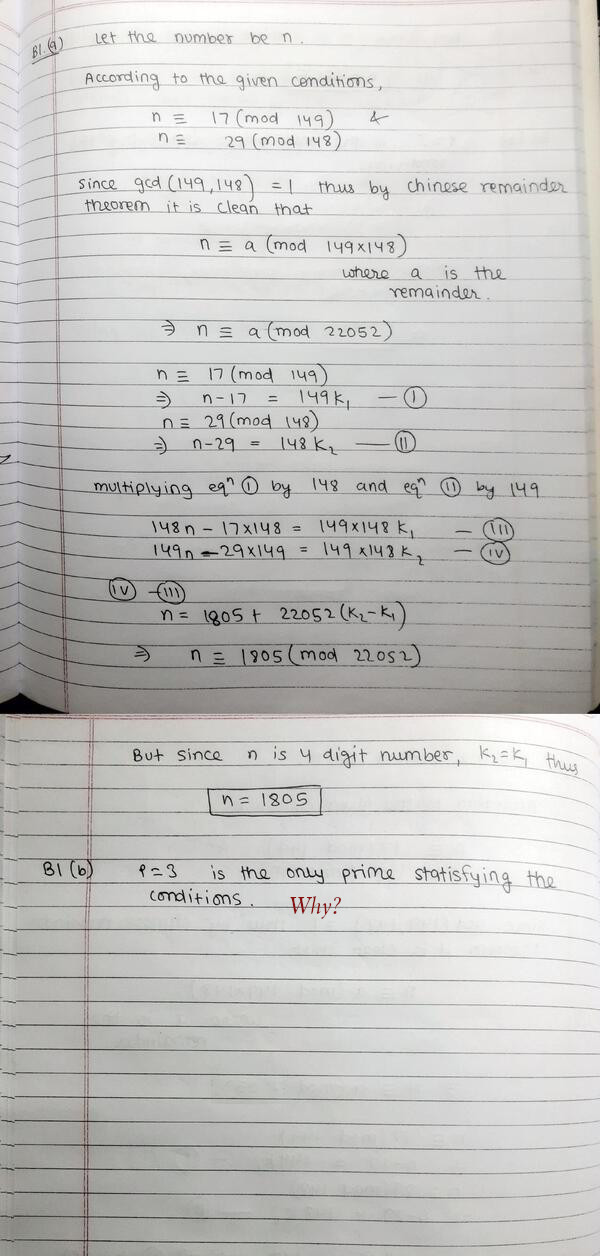 B1.(a) Let the number be n.
According to the given conditions,
n ≡ 17 (mod 149) &
n ≡ 29 (mod 148)
since gcd (149, 148) = 1 thus by chinese remainder
theorem it is clean that
n ≡ a (mod 149×148)
where a is the
remainder.
⇒ n ≡ a (mod 22052)
n ≡ 17 (mod 149)
⇒ n-17 = 149k₁ — (I)
n ≡ 29 (mod 148)
⇒ n-29 = 148k₂ — (II)
multiplying eqⁿ (I) by 148 and eqⁿ (II) by 149
148n - 17×148 = 149×148k₁ — (III)
149n - 29×149 = 149×148k₂ — (IV)
(IV) - (III)
n = 1805 + 22052(k₂-k₁)
⇒ n ≡ 1805 (mod 22052)
But since n is 4 digit number, k₂=k₁ thus
n = 1805
B1 (b) P=3 is the only prime statisfying the
conditions. Why?